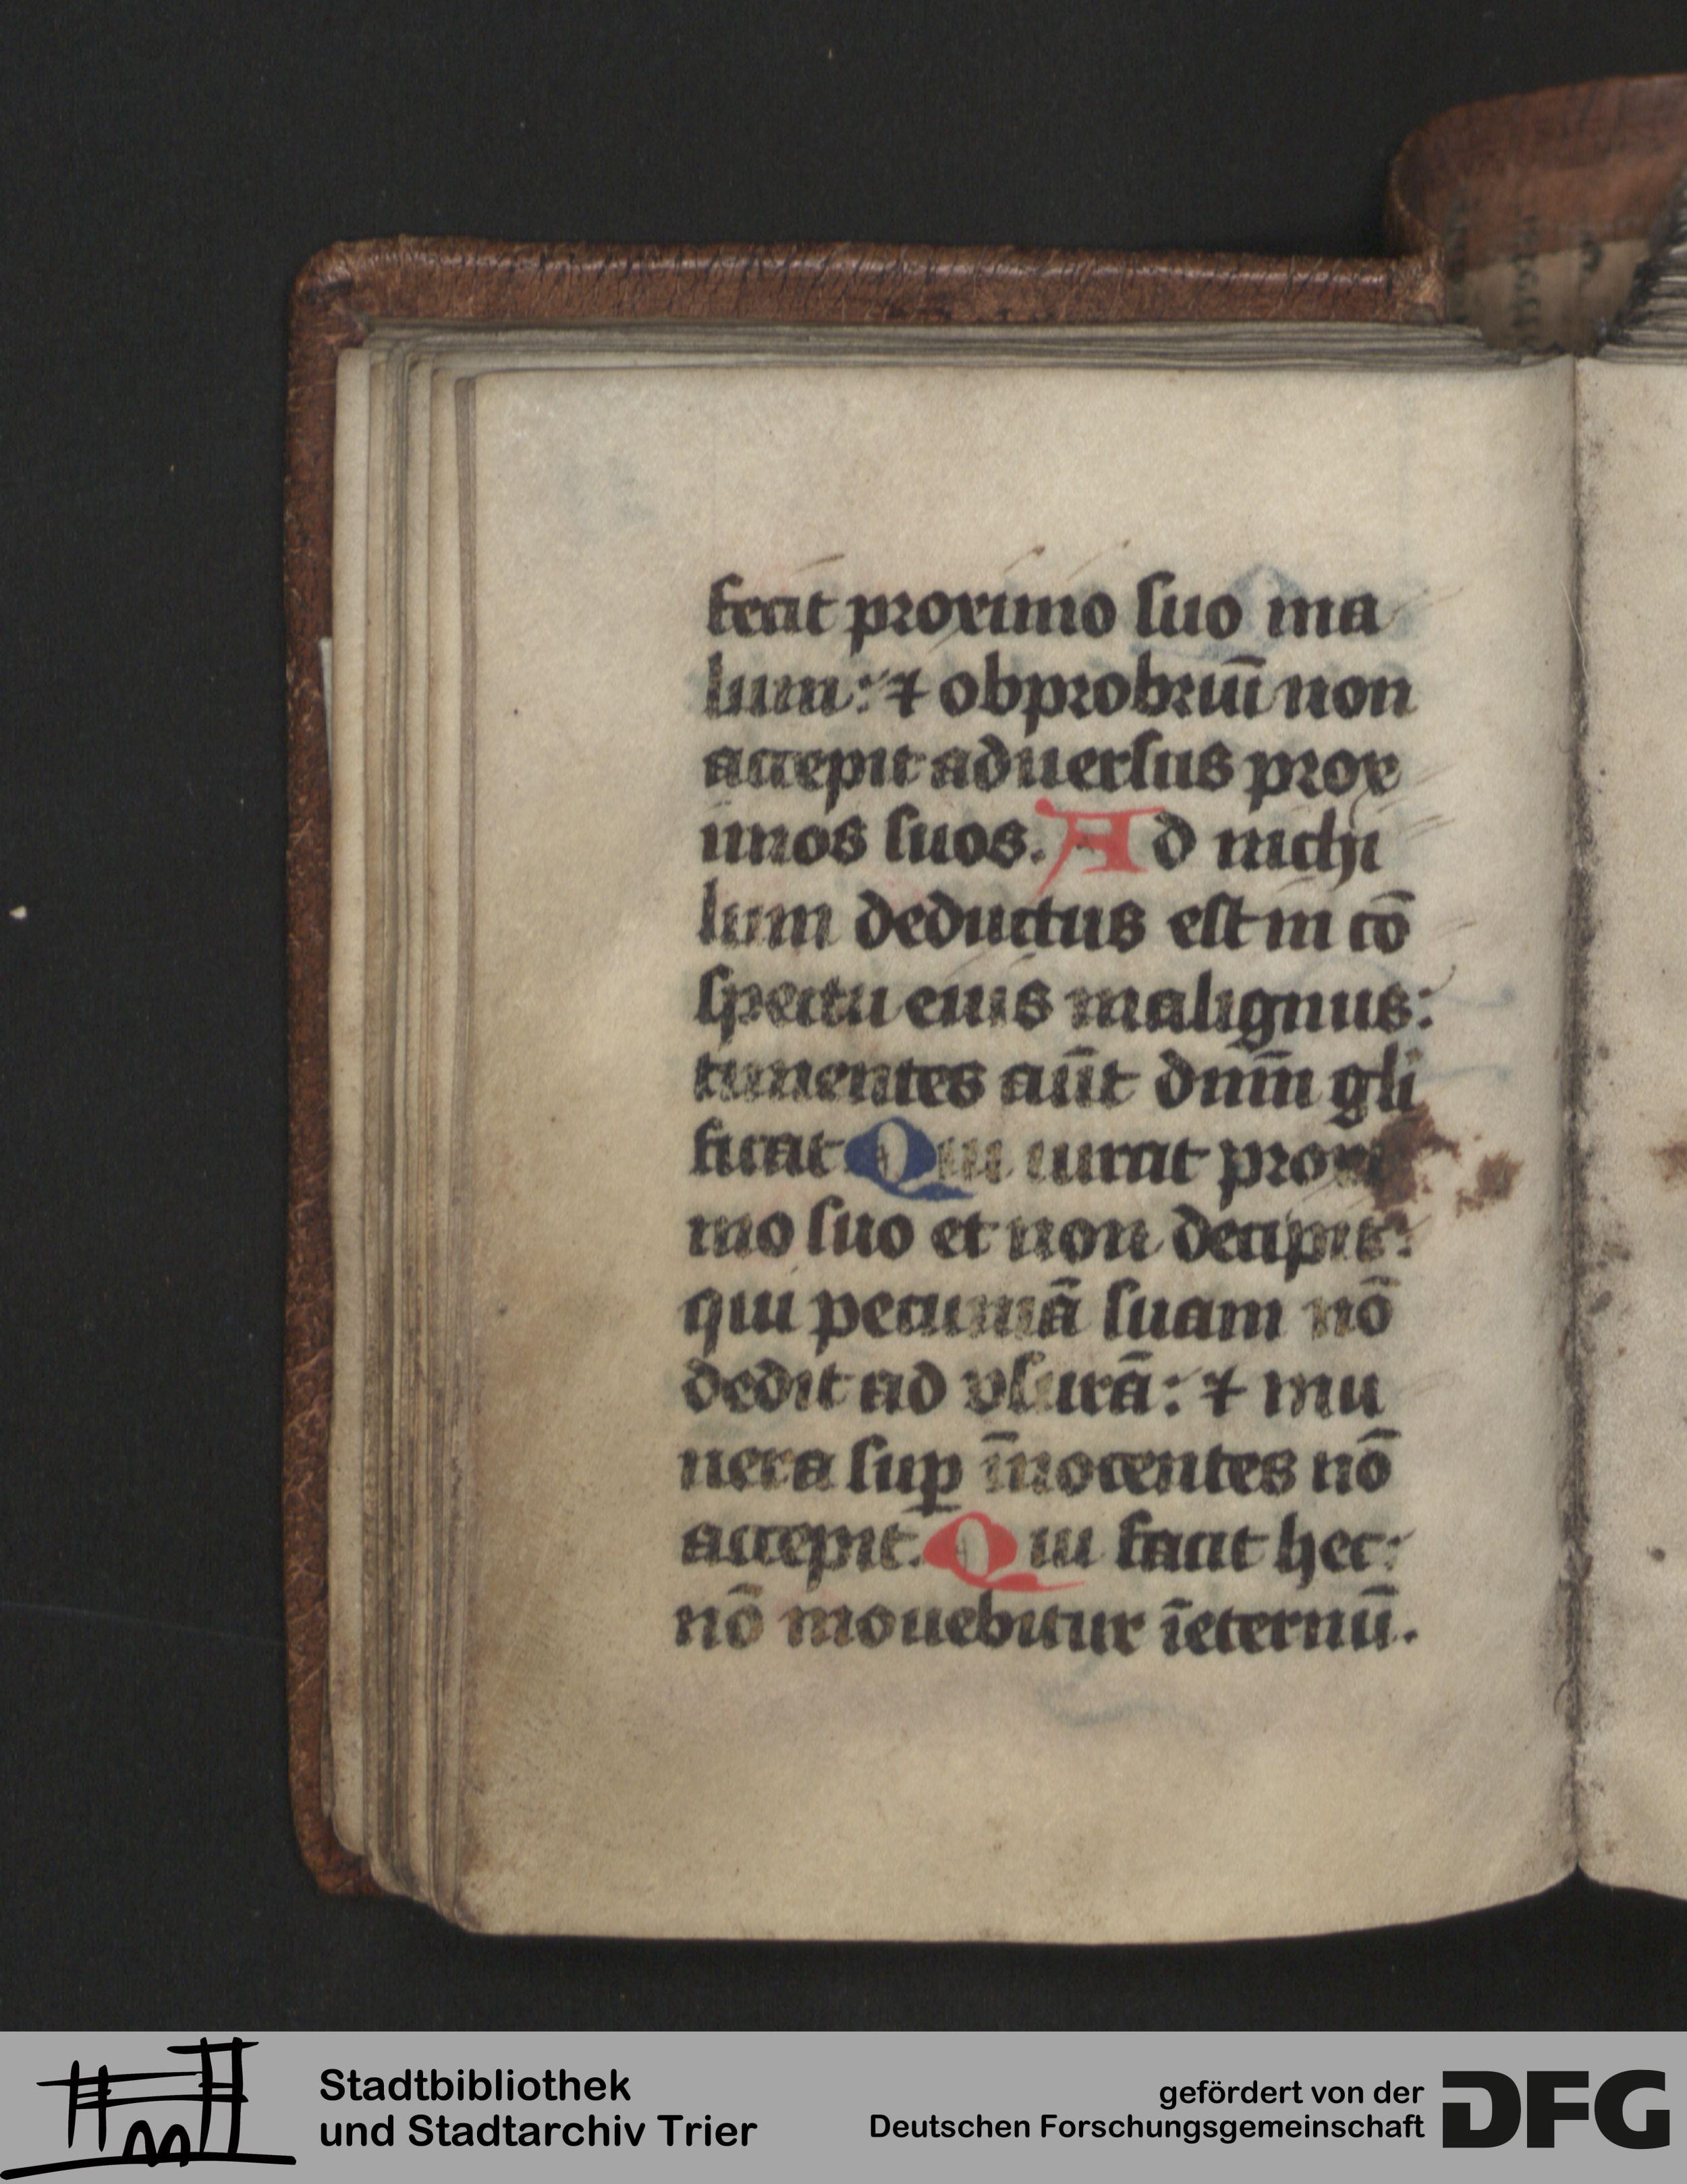 fecit proximo suo ma
lum: ⁊ obprobriū non
accepit aduersus prox
imos suos. Ad nichi
lum deductus est in cō
spectu eius malignus:
timentes aūt dnm̄ gli
ficat Qui iurat proxi
mo suo et non decipit:
qui pecuniā suam nō
dedit ad vsurā: ⁊ mu
nera suꝑ īnocentes nō
accepit. Qui facit hec:
nō mouebitur īeternū.
Stadtbibliothek
und Stadtarchiv Trier
gefördert von der
Deutschen Forschungsgemeinschaft
DFG